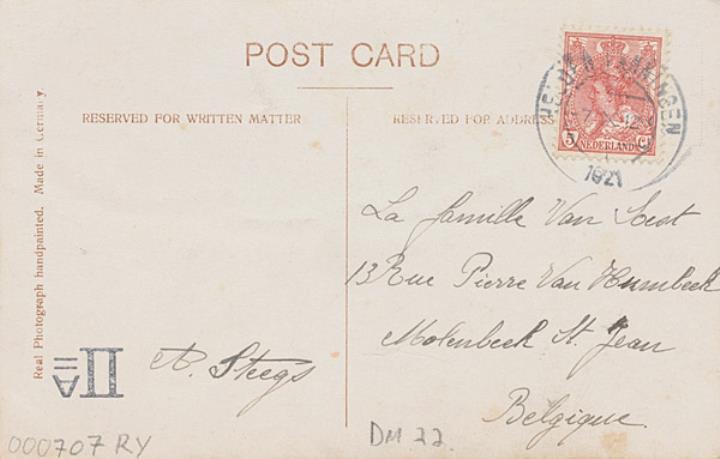 POST CARD
RESERVED FOR WRITTEN MATTER
RESERVED FOR ADDRESS
5 Ct
NEDERLAND
1921
Real Photograph handpainted. Made in Germany.
La famille Van Sest
13 Rue Pierre Van Humbeek
Molenbeek St. Jean
Belgique.
IIA
A. Steegs
000707 RY
DM 22.